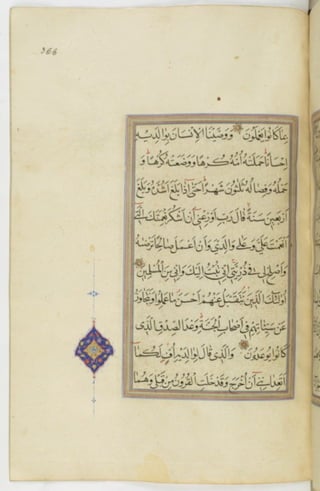 366
بما كانوا يعملون ووصينا الإنسان بوالديه
إحسانا حملته أمه كرها ووضعته كرها و
حمله وفصاله ثلثون شهرا حتى إذا بلغ أشده وبلغ
أربعين سنة قال رب أوزعني أن أشكر نعمتك التي
أنعمت علي وعلى والدي وأن أعمل صالحا ترضىه
وأصلح لي في ذريتي إني تبت إليك وإني من المسلمين
أولئك الذين نتقبل عنهم أحسن ما عملوا ونتجاوز
عن سيئاتهم في أصحاب الجنة وعد الصدق الذي
كانوا يوعدون والذي قال لوالديه أف لكما
أتعدانني أن أخرج وقد خلت القرون من قبلي وهما